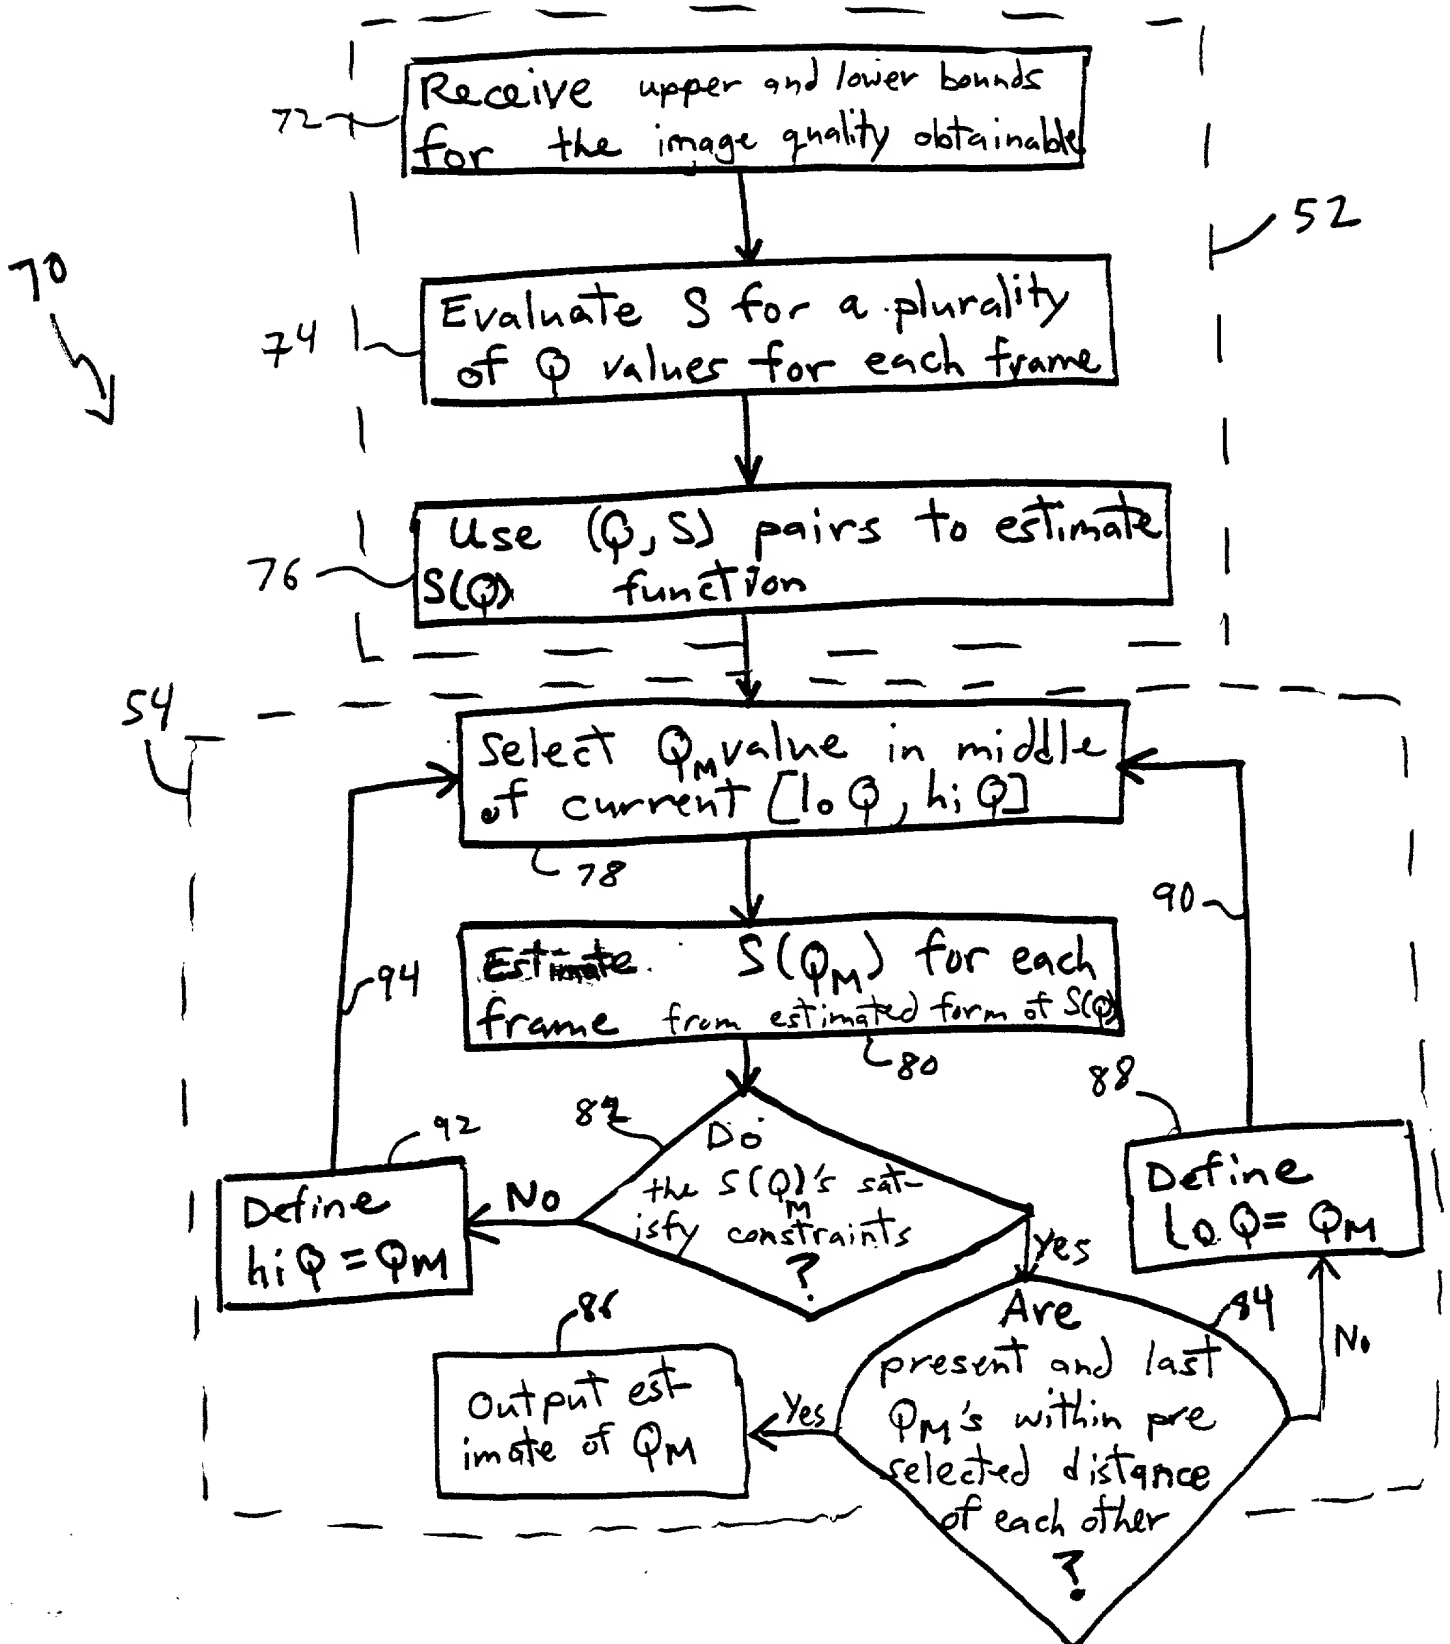 Receive upper and lower bounds
for the image quality obtainable
72
52
70
Evaluate S for a plurality
of Q values for each frame
74
Use (Q,S) pairs to estimate
S(Q) function
76
54
Select QM value in middle
of current [lo Q, hi Q]
78
90
94
Estimate S(QM) for each
frame from estimated form of S(Q)
80
88
82
92
Do
the S(QM)'s sat-
isfy constraints
?
No
Yes
Define
hi Q = QM
Define
lo Q = QM
86
84
No
Are
present and last
QM's within pre
selected distance
of each other
?
Yes
Output est-
imate of QM